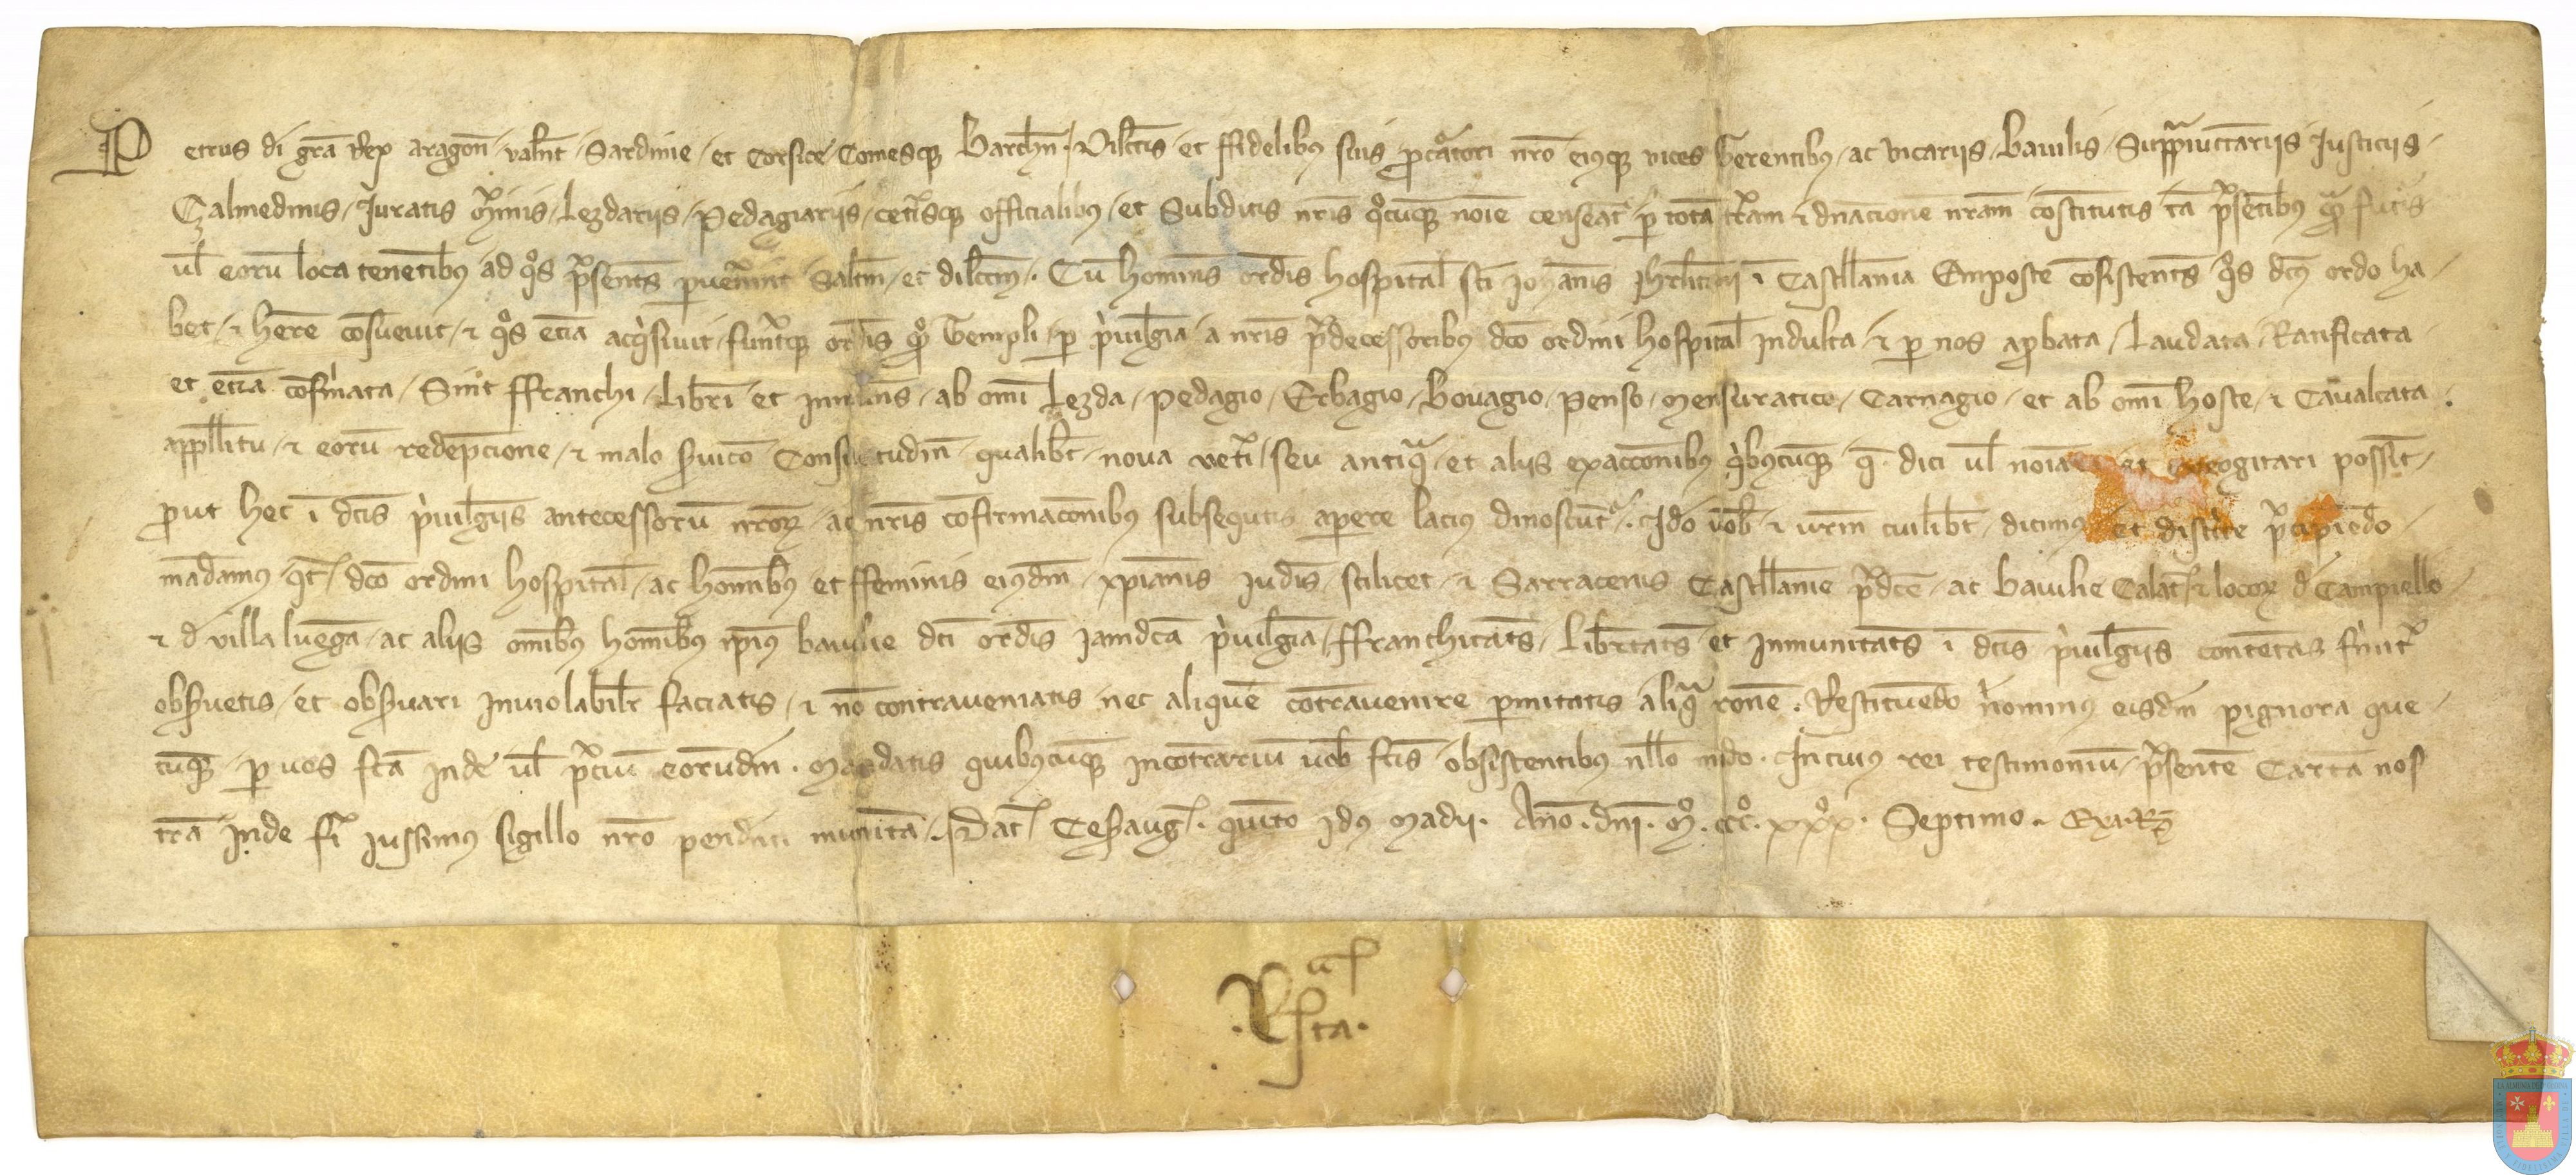 Petrus di gra Rex aragon valnt Sardinie et Corsice Comesq Barchn. Dilectis et ffidelibus suis procuratori nro eiusq vices Gerentibus ac vicariis Baiulis Suppraiunctariis Justiciis
Çalmedinis Juratis Merinis Lezdariis Pedagiariis cetisq officialibus et Subditis nris qocumq noie censeat p tota tram et dnacione nram costitutis ta psetibus qua futis
ul eoru loca tenetibus ad qos psentes puenerint Saltm et dilccm. Cu homines ordis hospital sci Johanis Jhrlitani i Castllania Emposte cosistentes qos dcus ordo ha
bet et here cosueuit et qos etia acqisiuit fuerutq ordis quo Templi p priuilgia a nris pdecessoribus dco ordini hospital Indulta et p nos aprobata Laudata Ratificata
et etia cofirmata Sint ffranchi Libri et Inmunes ab omi Lezda Pedagio Erbagio Bouagio Penso Mensuratico Carnagio et ab omi hoste et Caualcata
appllitu et eoru redepcione et malo seruico Consuetudin qualibt noua veti seu antiqa et aliis exaccionibus qibuscumq q dici ul noiari et excogitari possit
prout hec i dcis priuilgiis antecessoru nrorum ac nris cofirmaconibus subsequtis apere lacius dinoscutr. Ido uob et urm cuilibt dicimus et districte pcipiedo
madamus qt dco ordini hospital ac homibus et ffeminis eiusdm xpianis iudis scilicet et Sarracenis Castllanie pdce ac baiulie Calat et locor d Campiello
et d villa luega ac aliis omibus homibus ipius baiulie dci ordis iamdca priuilgia ffranchitats Librtats et Inmunitats i dcis priuilgiis contetas firmit
obseruetis et obseruari Inuiolabilr faciatis et no contraueniatis nec alique cotrauenire pmitatis aliqa rone. Restituedo nominus eisdm pignora que
cumq p uos fca inde ul pciu eorudm. Mandatis quibuscumq incotrariu uob fcis obsistentibus nllo mdo. In cuius rei testimoniu psente Carta nos
tra Inde fi iussimus sigillo nro pendenti munita. Dat Cesaraug. quito Idus Madii. Ano. dni. Mo. ccco. xxxo. Septimo. Exa. Rs
Rsta.